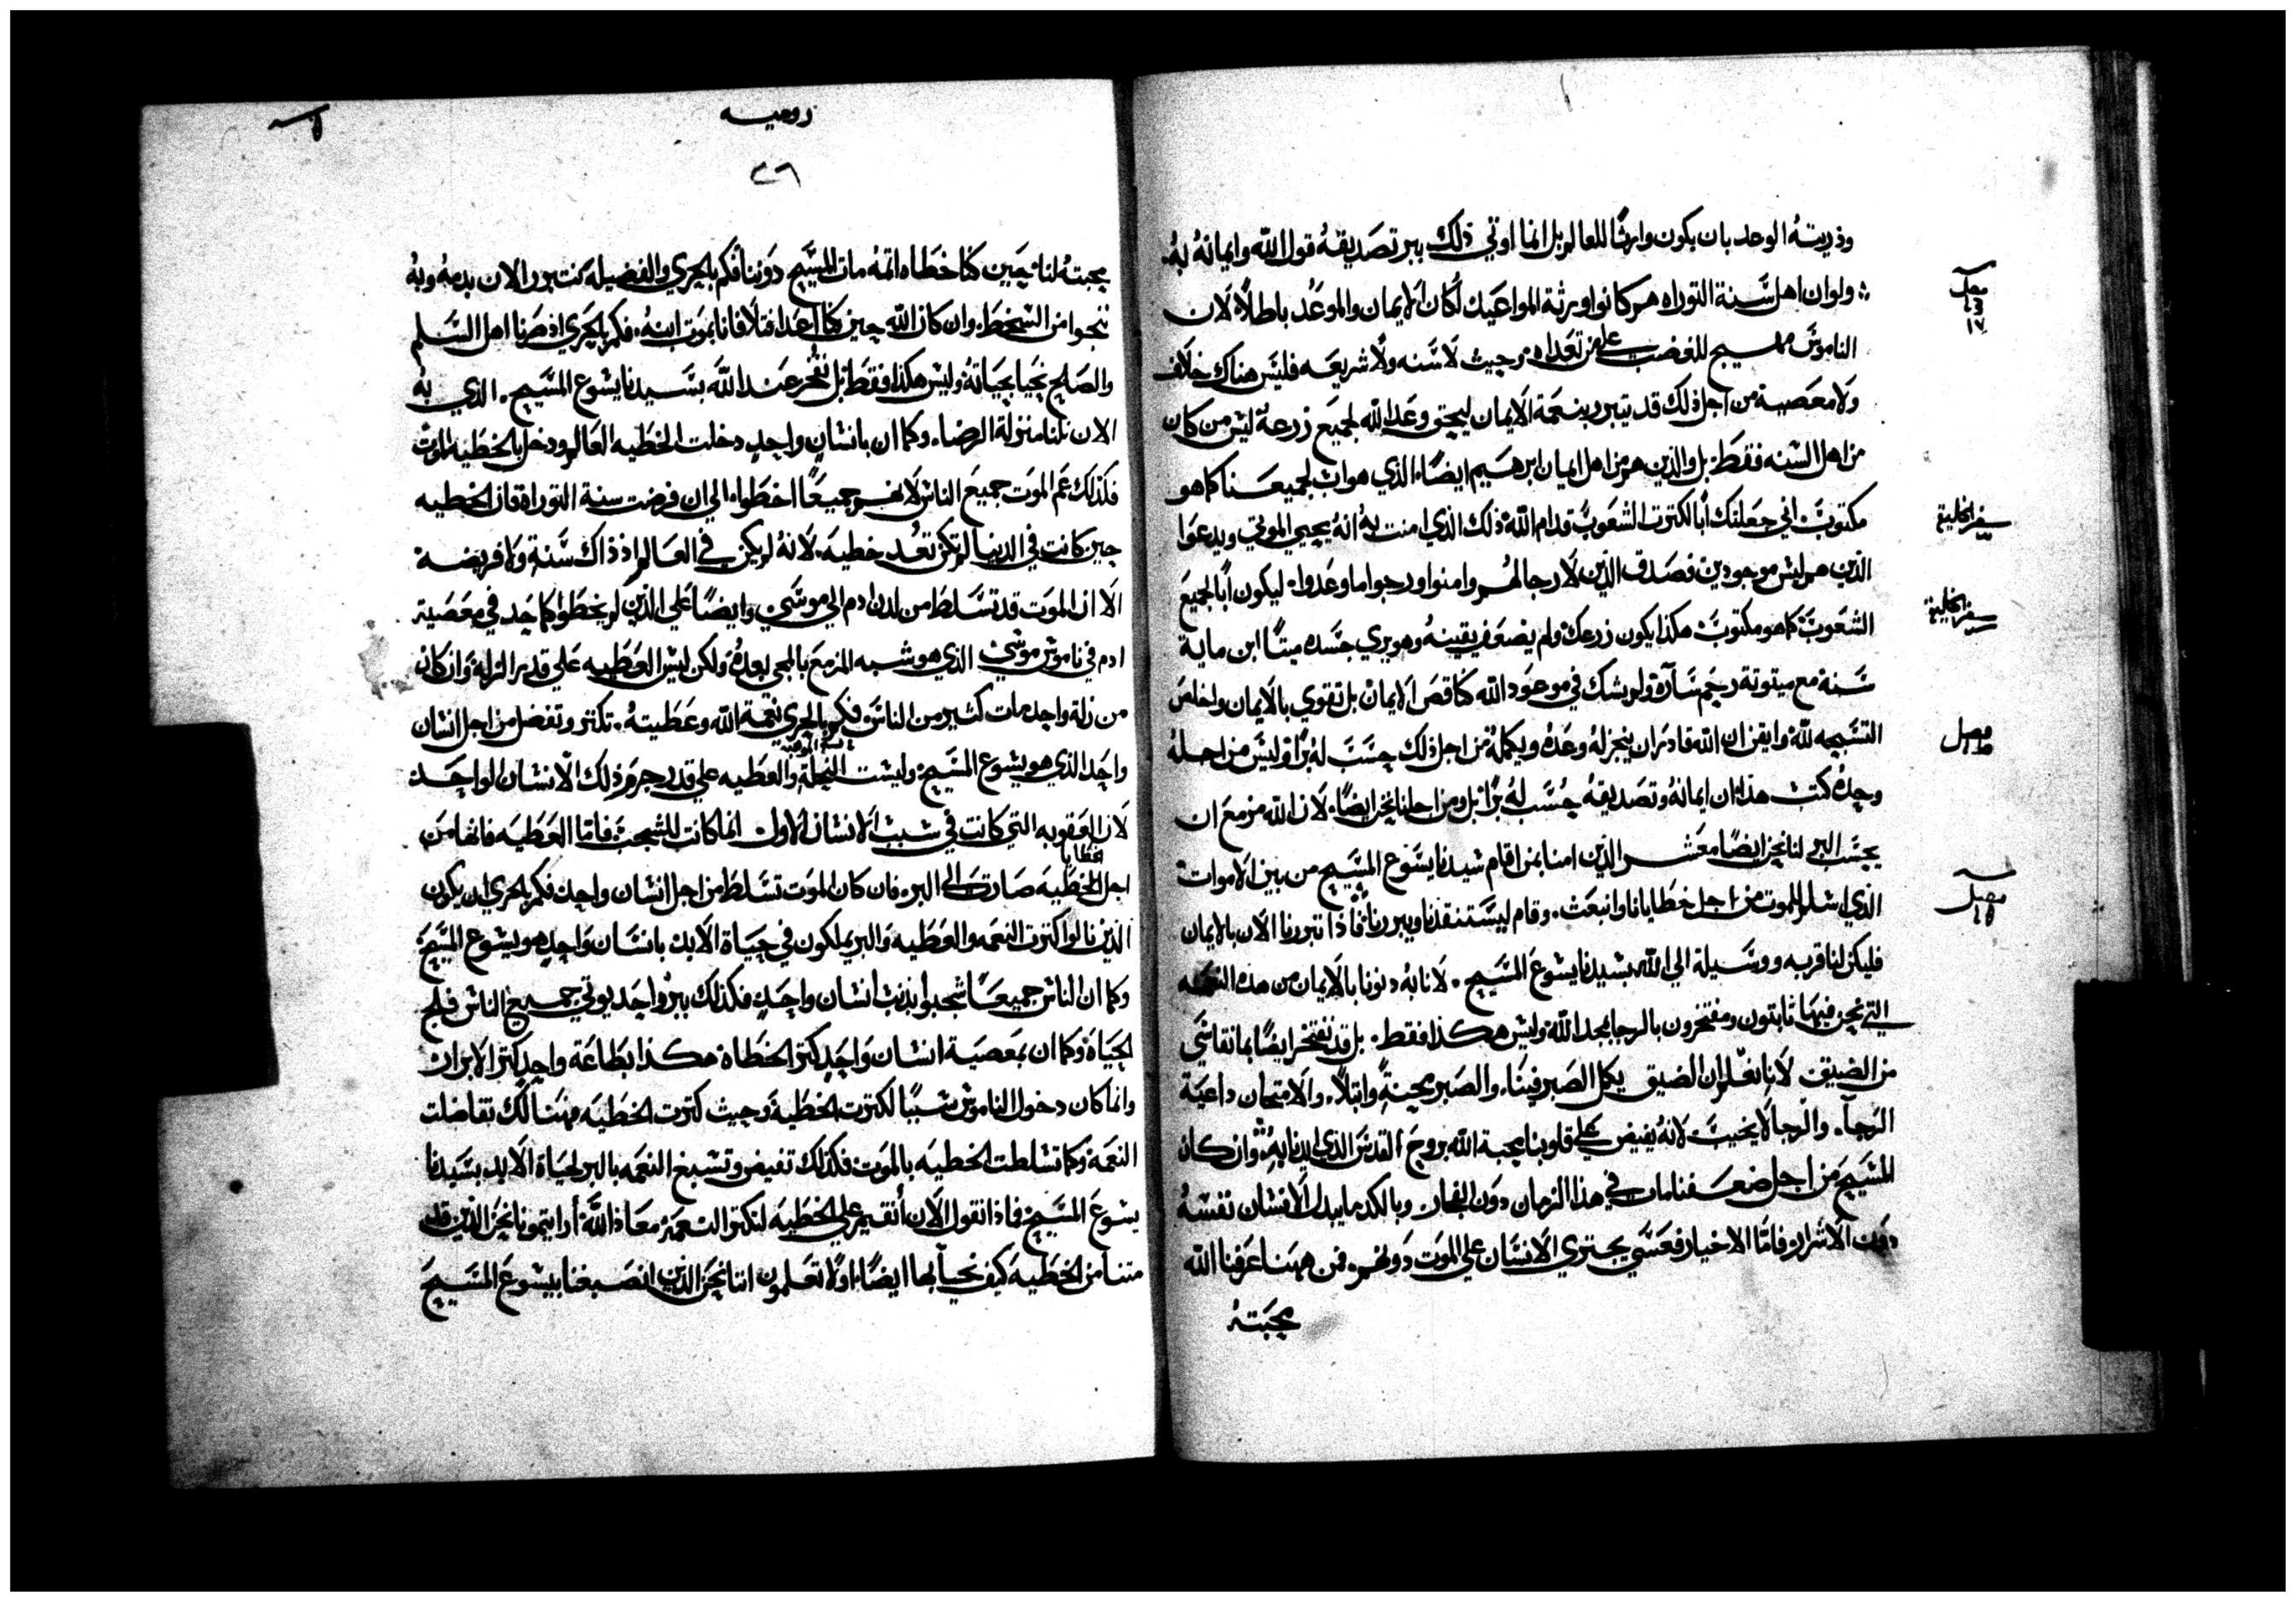 وذريته الوحد بان يكون وارثا للعالم بل انما اوتي ذلك ببر تصديقه قول الله وايمانه به
ولو ان اهل سنة التوراه هم كانوا ورثة المواعيد لكان الايمان والموعد باطلا لان
الناموس مهيج للغضب على من تعداه وحيث لا سنه ولا شريعه فليس هناك خلاف
ولا معصية من اجل ذلك قد تبرر بنعمة الايمان ليحق وعد الله لجميع زرعه ليس من كان
من اهل السنه فقط بل والذين هم من اهل ايمان ابرهيم ايضا الذي هو اب لجميعنا كما هو
مكتوب اني جعلتك أبا لكثرت الشعوب قدام الله ذلك الذي امنت به انه يحيي الموتى ويدعوا
الذين هم ليس موجودين فصدق الذين لا رجا لهم وامنوا ورجوا ما وعدوا ليكون أبا لجميع
الشعوب كما هو مكتوب هكذا يكون زرعك ولم يضعف يقينه وهو يري جسده ميتا ابن ماية
سنة مع ميتوتة رحم سآرة ولم يشك في موعود الله كناقص الايمان بل تقوي بالايمان واخلص
التسبيحه لله وايقن ان الله قادر ان ينجز له وعده ويكمله من اجل ذلك حسب له برا وليس من اجله
وحده كتب هذا ان ايمانه وتصديقه حسب له برا بل ومن اجلنا نحن ايضا لان الله مزمع ان
يحسب البر لنا نحن ايضا معشر الذين امنا بمن اقام سيدنا يسوع المسيح من بين الاموات
الذي اسلم للموت من اجل خطايانا وانبعث وقام ليستنقذنا ويبررنا فاذا تبررنا الان بالايمان
فليكن لنا قربه ووسيلة الي الله بسيدنا يسوع المسيح لانا به دنونا بالايمان من هذه النعمه
التي نحن فيها ثابتون ومفتخرون بالرجا بمجد الله وليس هكذا فقط بل قد نفتخر ايضا بما نقاسي
من الضيق لانا نعلم ان الضيق يكمل الصبر فينا والصبر محنة وابتلاء والامتحان داعية
الرجآ والرجا لا يخيب لانه يفيض على قلوبنا محبة الله بروح القدس الذي ايدنا به وان كان
المسيح من اجل ضعفنا مات في هذا الزمان دون الفجار وبالكد ما يبدل الانسان نفسه
دون الاشرار فاما الاخيار فعسي يجتري الانسان على الموت دونهم فمن ههنا عرفنا الله
محبته
فصل
سفر الخليقة
سفر الخليقة
فصل
فصل
روميه
٢٦
محبته لنا حين كنا خطاه اثمه مات المسيح دوننا فكم بالحري والفضيلة نتبرر الان بدمه وبه
ننجوا من السخط وان كان الله حين كنا اعدا قتلافانا بموت ابنه فكم بالحري اذ صرنا اهل السلم
والصلح نحيا بحياته وليس هكذا فقط بل نفتخر عند الله بسيدنا يسوع المسيح الذي به
الان نلنا منزلة الرضاء وكما ان بانسان واحد دخلت الخطيه العالم ودخل بالخطيه الموت
فكذلك عم الموت جميع الناس لانهم جميعا اخطوا الي ان فرضت سنة التوراة فان الخطيه
حين كانت في الدنيا لم تكن تعد خطيه لانه لم يكن في العالم اذ ذاك سنة ولا فريضه
الا ان الموت قد تسلط من لدن ادم الي موسي وايضا على الذين لم يخطوا كما حد في معصية
ادم في ناموس موسي الذي هو شبه المزمع بالمجي بعده ولكن ليس العطيه علي قدر الزلة وان كان
من زلة واحد مات كثير من الناس فكم بالحري نعمة الله وعطيته تكثر وتفضل من اجل انسان
واحد الذي هو يسوع المسيح وليست النحلة والعطيه علي قدر جرم ذلك الانسان الواحد
لان العقوبه التي كانت في سبب الانسان الاول انما كانت للشجب فاما العطيه فانها من
الخطايا
اجل الخطيه صارت الي البر فان كان الموت تسلط من اجل انسان واحد فكم بالحري ان يكون
الذين نالوا كثرت النعمه والعطيه والبر يملكون في حياة الابد بانسان واحد هو يسوع المسيح
وكما ان الناس جميعا شجبوا بذنب انسان واحد فكذلك ببر واحد يوتي جميع الناس فلج
الحياة وكما ان بمعصية انسان واحد كثر الخطاة هكذا بطاعة واحد كثر الابرار
وانما كان دخول الناموس سببا لكثرت الخطية وحيث كثرت الخطيه فهنالك تفاضلت
النعمة وكما تسلطت الخطيه بالموت فكذلك تفيض وتسبغ النعمه بالبر لحياة الابد بسيدنا
يسوع المسيح فاذا نقول الان أنقيم علي الخطيه لتكثر النعمة معاذ الله أرايتمونا نحن الذين قد
متنا من الخطيه كيف نحيا بها ايضا اولا تعلمون اننا نحن الذين انصبغنا بيسوع المسيح